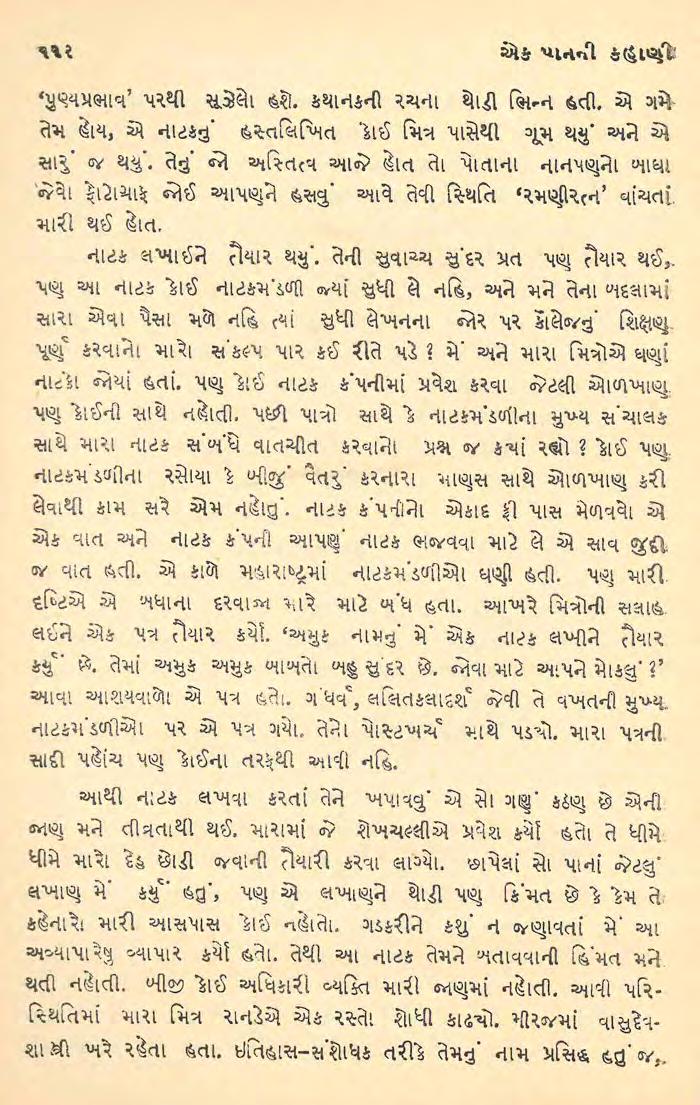 ૧૧૨ એક પાનની કહાણી
‘પુણ્યપ્રભાવ’ પરથી સૂઝેલો હશે. કથાનકની રચના થોડી ભિન્ન હતી. એ ગમે
તેમ હોય, એ નાટકનું હસ્તલિખિત કોઈ મિત્ર પાસેથી ગૂમ થયું અને એ
સારું જ થયું. તેનું જો અસ્તિત્વ આજે હોત તો પોતાના નાનપણનો બાઘા
જેવો ફોટોગ્રાફ જોઈ આપણને હસવું આવે તેવી સ્થિતિ ‘રમણીરત્ન’ વાંચતાં
મારી થઈ હોત.
નાટક લખાઈને તૈયાર થયું. તેની સુવાચ્ય સુંદર પ્રત પણ તૈયાર થઈ,
પણ આ નાટક કોઈ નાટકમંડળી જ્યાં સુધી લે નહિ, અને મને તેના બદલામાં
સારા એવા પૈસા મળે નહિ ત્યાં સુધી લેખનના જોર પર કૉલેજનું શિક્ષણ
પૂર્ણ કરવાનો મારો સંકલ્પ પાર કઈ રીતે પડે ? મેં અને મારા મિત્રોએ ઘણાં
નાટકો જોયાં હતાં. પણ કોઈ નાટક કંપનીમાં પ્રવેશ કરવા જેટલી ઓળખાણ
પણ કોઈની સાથે નહોતી. પછી પાત્રો સાથે કે નાટકમંડળીના મુખ્ય સંચાલક
સાથે મારા નાટક સંબંધે વાતચીત કરવાનો પ્રશ્ન જ ક્યાં રહ્યો ? કોઈ પણ
નાટકમંડળીના રસોયા કે બીજું વૈતરું કરનારા માણસ સાથે ઓળખાણ કરી
લેવાથી કામ સરે એમ નહોતું. નાટક કંપનીનો એકાદ ફ્રી પાસ મેળવવો એ
એક વાત અને નાટક કંપની આપણું નાટક ભજવવા માટે લે એ સાવ જુદી
જ વાત હતી. એ કાળે મહારાષ્ટ્રમાં નાટકમંડળીઓ ઘણી હતી. પણ મારી
દૃષ્ટિએ એ બધાના દરવાજા મારે માટે બંધ હતા. આખરે મિત્રોની સલાહ
લઈને એક પત્ર તૈયાર કર્યો. ‘અમુક નામનું મેં એક નાટક લખીને તૈયાર
કર્યું છે. તેમાં અમુક અમુક બાબતો બહુ સુંદર છે. જોવા માટે આપને મોકલું ?’
આવા આશયવાળો એ પત્ર હતો. ગંધર્વ, લલિતકલાદર્શ જેવી તે વખતની મુખ્ય
નાટકમંડળીઓ પર એ પત્ર ગયો. તેનો પોસ્ટખર્ચ માથે પડ્યો. મારા પત્રની
સાદી પહોંચ પણ કોઈના તરફથી આવી નહિ.
આથી નાટક લખવા કરતાં તેને ખપાવવું એ સો ગણું કઠણ છે એની
જાણ મને તીવ્રતાથી થઈ. મારામાં જે શેખચલ્લીએ પ્રવેશ કર્યો હતો તે ધીમે
ધીમે મારો દેહ છોડી જવાની તૈયારી કરવા લાગ્યો. છાપેલાં સો પાનાં જેટલું
લખાણ મેં કર્યું હતું, પણ એ લખાણને થોડી પણ કિંમત છે કે કેમ તે
કહેનારો મારી આસપાસ કોઈ નહોતો. ગડકરીને કશું ન જણાવતાં મેં આ
અવ્યાપારેષુ વ્યાપાર કર્યો હતો. તેથી આ નાટક તેમને બતાવવાની હિંમત મને
થતી નહોતી. બીજી કોઈ અધિકારી વ્યક્તિ મારી જાણમાં નહોતી. આવી પરિ-
સ્થિતિમાં મારા મિત્ર રાનડેએ એક રસ્તો શોધી કાઢ્યો. મીરજમાં વાસુદેવ-
શાસ્ત્રી ખરે રહેતા હતા. ઇતિહાસ-સંશોધક તરીકે તેમનું નામ પ્રસિદ્ધ હતું જ,